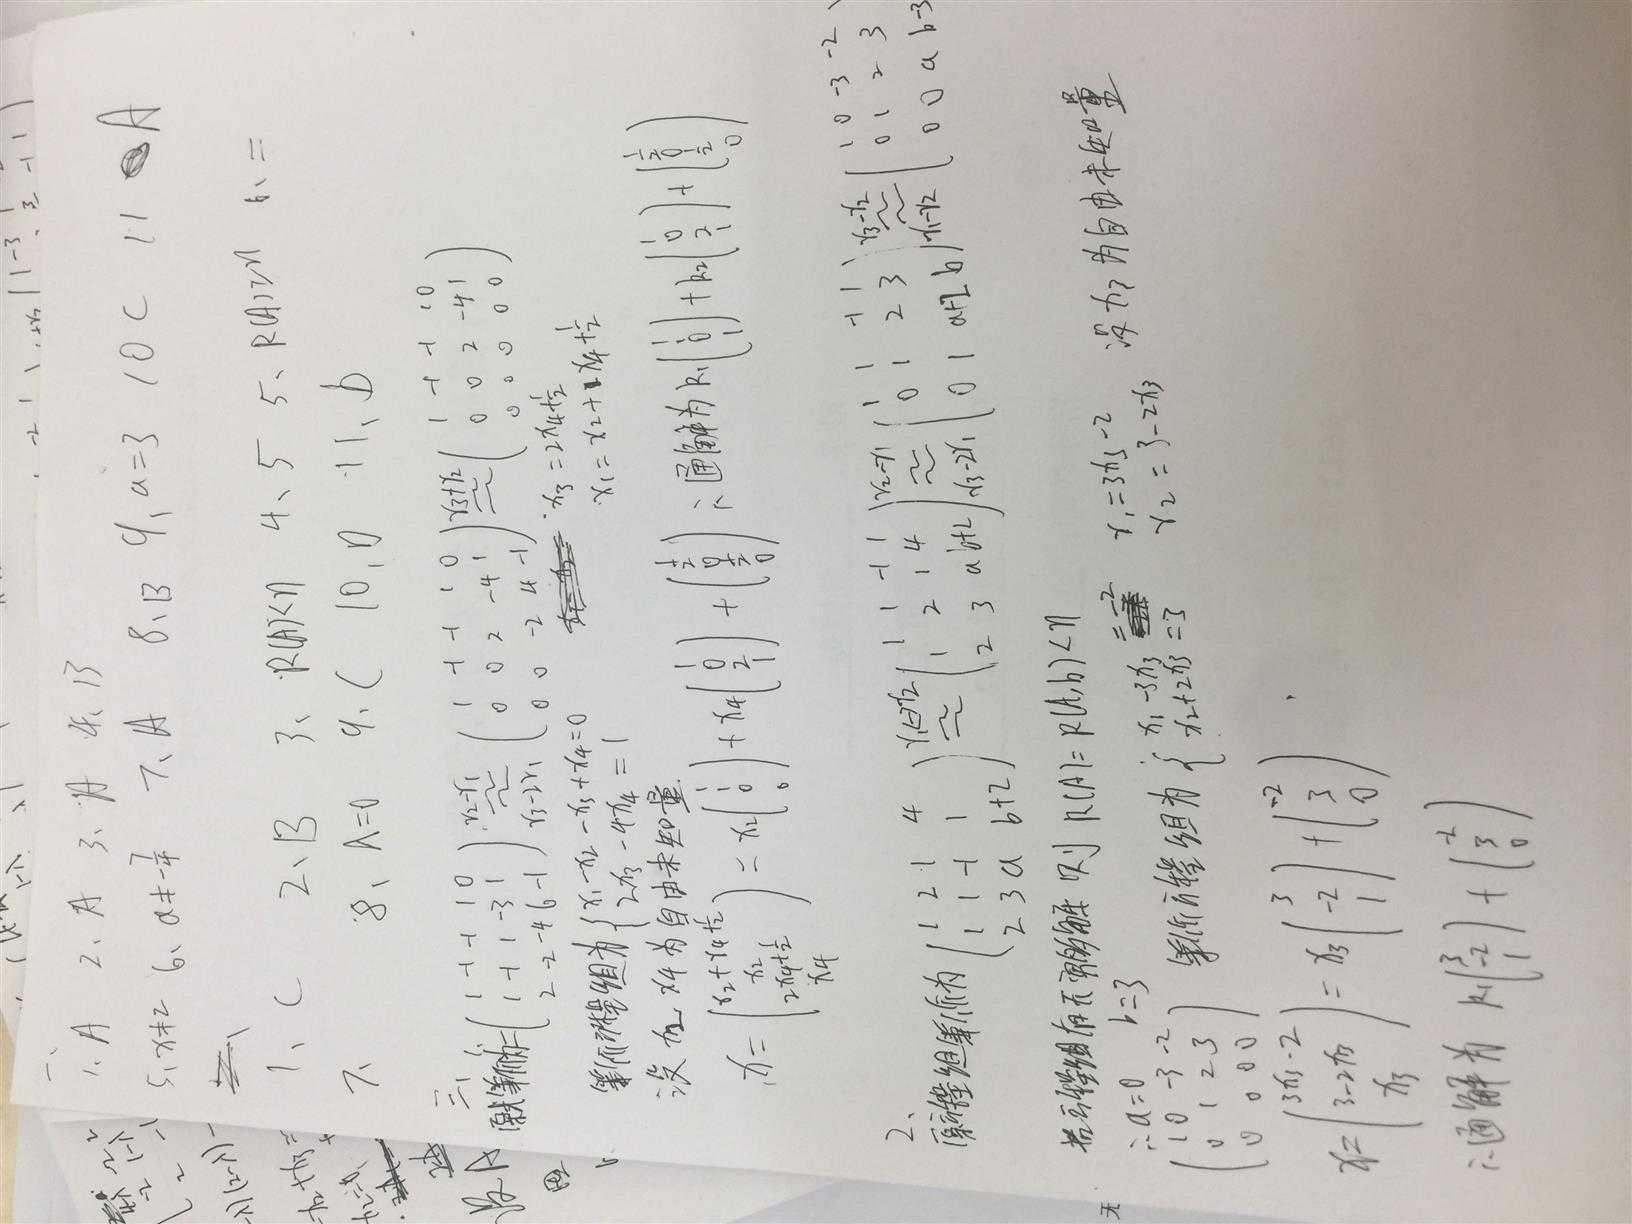 一、
1、A 2、A 3、A 4、13
5、x≠2 6、a≠-7/4 7、A 8、B 9、a=3 10 C 11 A
二、
1、C 2、B 3、R(A)<n 4、5 5、R(A)=n 6、=
7、 8、λ=0 9、C 10、D 11、b
三、
1 -1 -1 1 0
1 -1 1 -3 1
2 -2 -4 6 -1
r2-r1
r3-2r1
1 -1 -1 1 0
0 0 2 -4 1
0 0 -2 4 -1
r3+r2
1 -1 -1 1 0
0 0 2 -4 1
0 0 0 0 0
等价方程组为 { x1-x2-x3+x4=0
2x3-4x4=1
x3=2x4+1/2
x1=x2+x4+1/2
设x2、x4为自由未知量
x= (x2+x4+1/2 x2 2x4+1/2 x4) = x2(1 1 0 0) + x4(1 0 2 1) + (1/2 0 1/2 0) ∴通解为 k1(1 1 0 0) + k2(1 0 2 1) + (1/2 0 1/2 0)
2、
原方程组等价为
1 2 1 4
1 1 -1 1
2 3 a b+2
r1↔r2
1 1 -1 1
1 2 1 4
2 3 a b+2
r2-r1
r3-2r1
1 1 -1 1
0 1 2 3
0 1 a+2 b
r3-r2
r1-r2
1 0 -3 -2
0 1 2 3
0 0 a b-3
若方程组有无穷多解 则 R(A)=R(A,b)<n
∴a=0 b=3
1 0 -3 -2
0 1 2 3
0 0 0 0
等价方程组为 { x1-3x3=-2
x2+2x3=3
x1=3x3-2
x2=3-2x3
设x3为自由未知量
x= (3x3-2 3-2x3 x3) = x3(3 -2 1) + (-2 3 0)
∴通解为 k1(3 -2 1) + (-2 3 0)